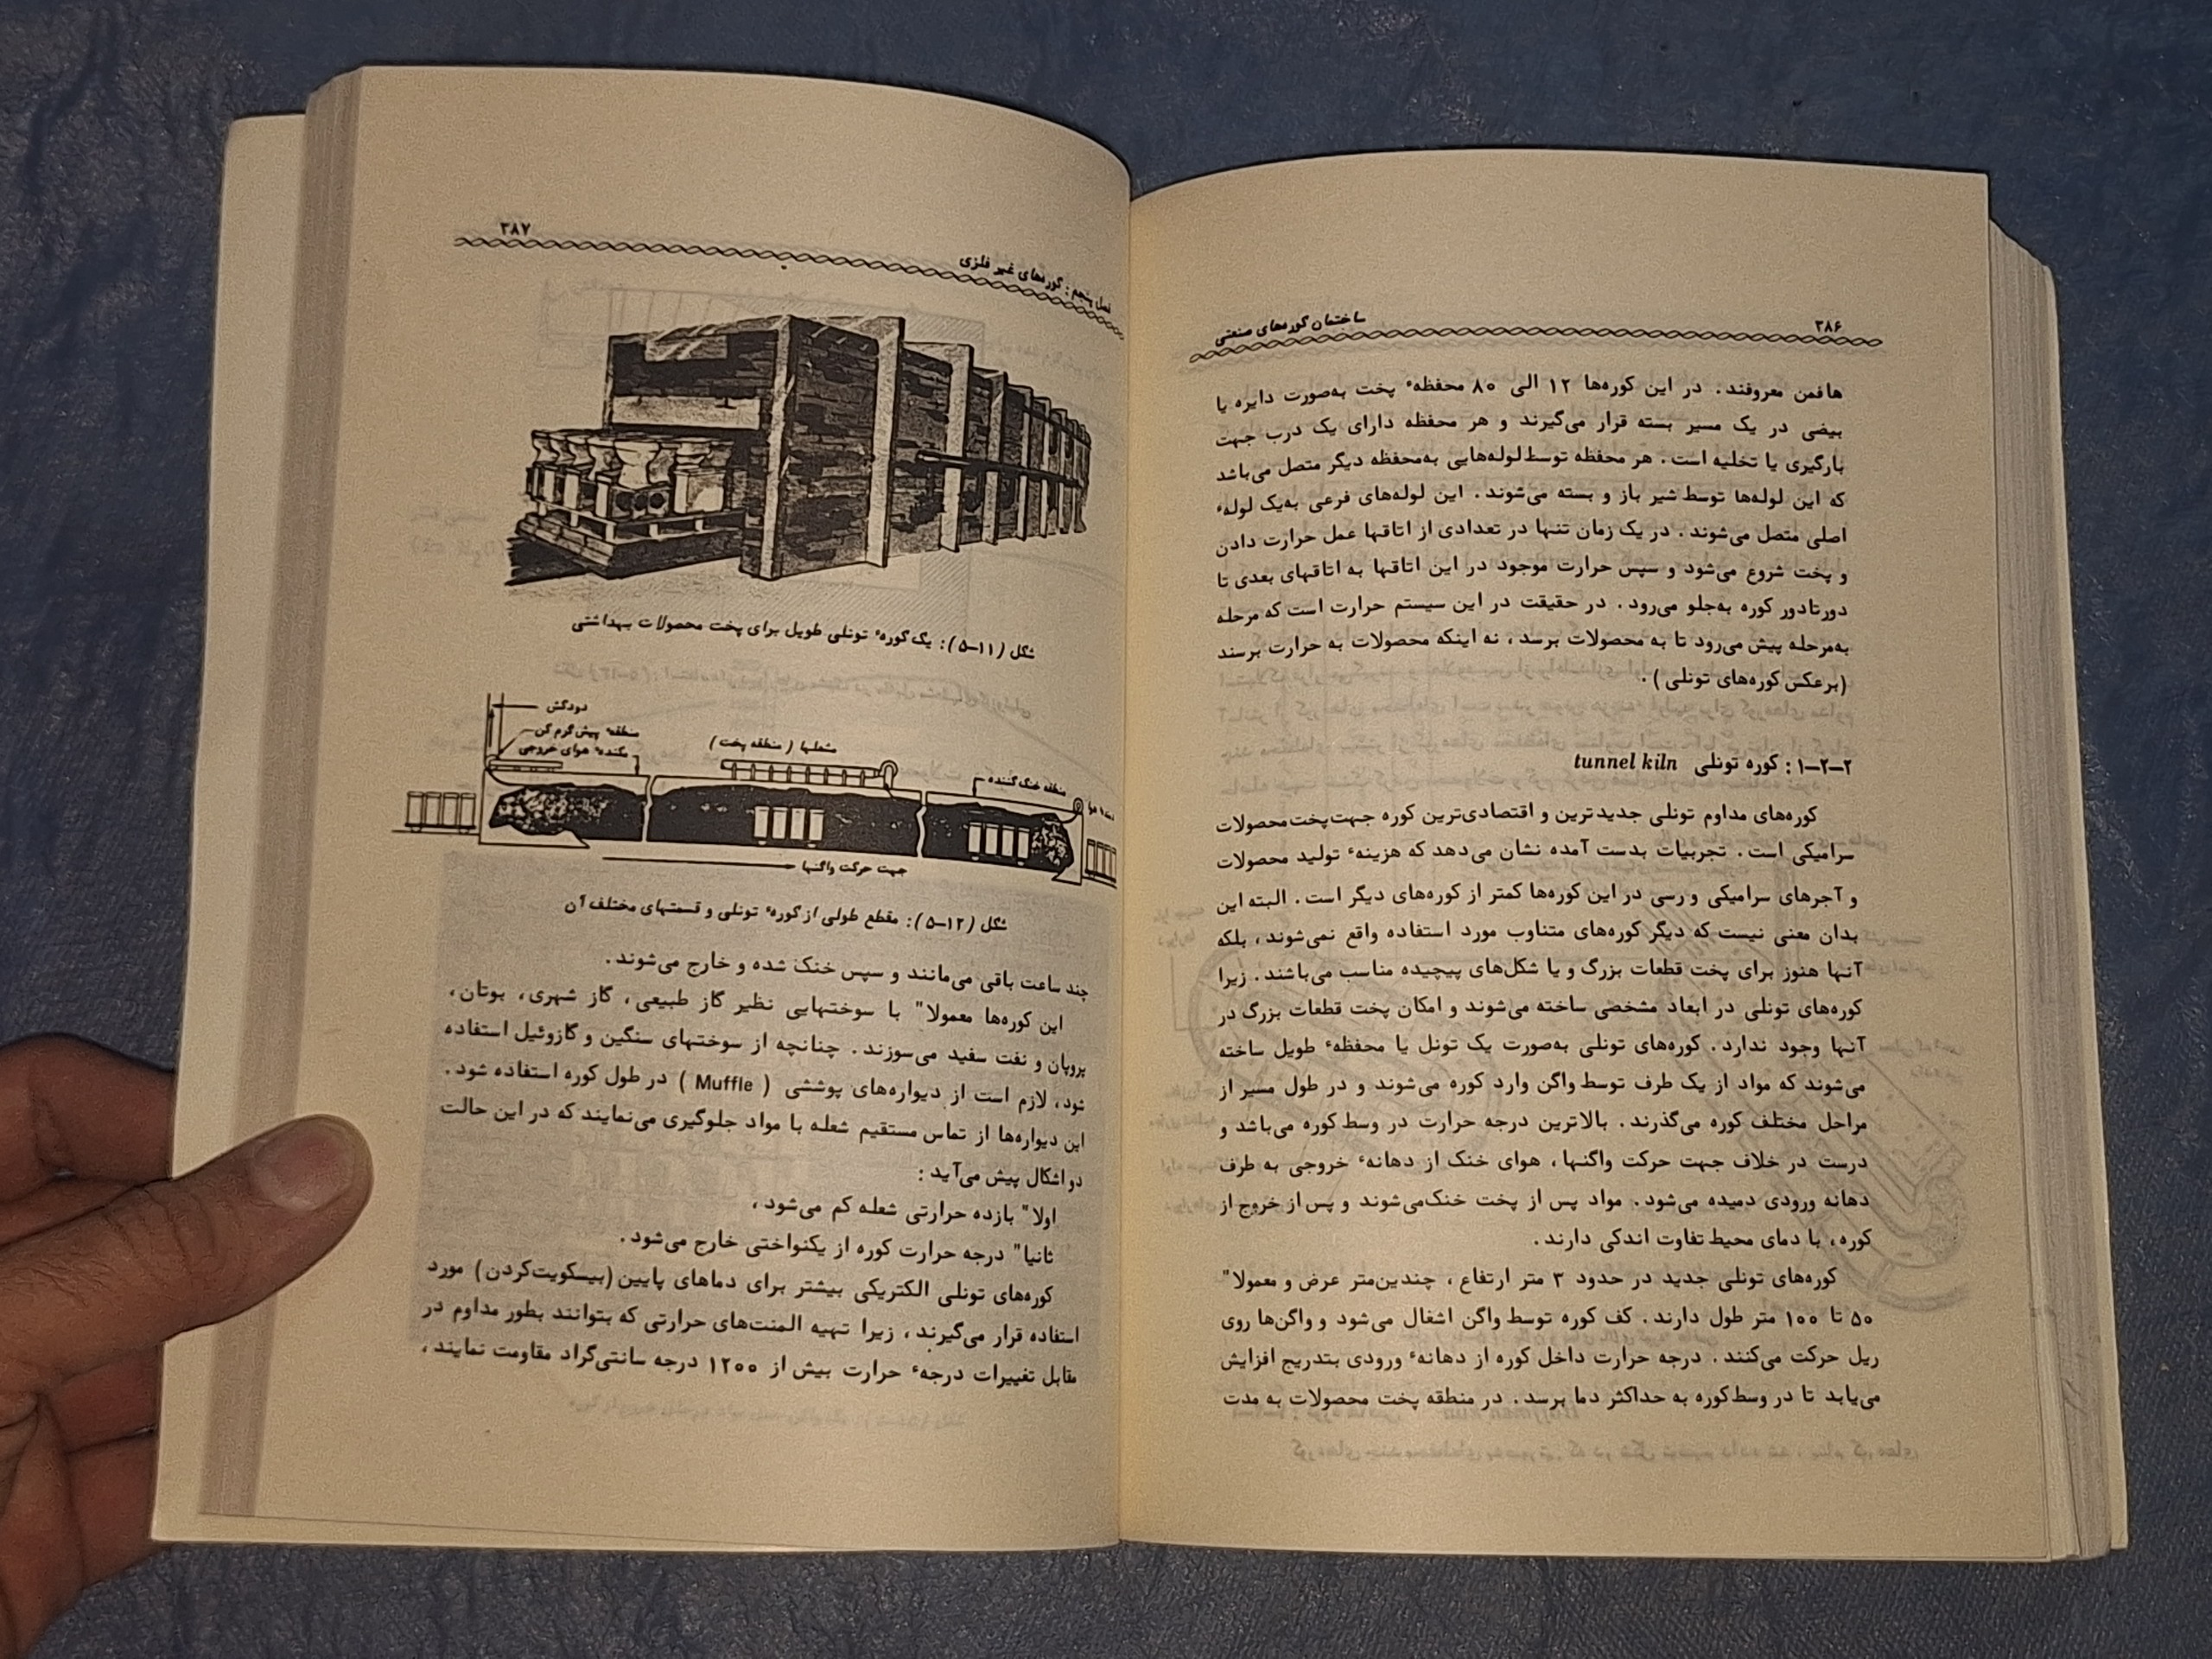 ۳۸۶
ساختمان کوره‌های صنعتی
هافمن معروفند. در این کوره‌ها ۱۲ الی ۸۰ محفظهٔ پخت به‌صورت دایره یا
بیضی در یک مسیر بسته قرار می‌گیرند و هر محفظه دارای یک درب جهت
بارگیری یا تخلیه است. هر محفظه توسط لوله‌هایی به‌محفظه دیگر متصل می‌باشد
که این لوله‌ها توسط شیر باز و بسته می‌شوند. این لوله‌های فرعی به‌یک لولهٔ
اصلی متصل می‌شوند. در یک زمان تنها در تعدادی از اتاقها عمل حرارت دادن
و پخت شروع می‌شود و سپس حرارت موجود در این اتاقها به اتاقهای بعدی تا
دورتادور کوره به‌جلو می‌رود. در حقیقت در این سیستم حرارت است که مرحله
به‌مرحله پیش می‌رود تا به محصولات برسد، نه اینکه محصولات به حرارت برسند
(برعکس کوره‌های تونلی).
۲–۲–۱: کوره تونلی tunnel kiln
کوره‌های مداوم تونلی جدیدترین و اقتصادی‌ترین کوره جهت‌پخت‌محصولات
سرامیکی است. تجربیات بدست آمده نشان می‌دهد که هزینهٔ تولید محصولات
و آجرهای سرامیکی و رسی در این کوره‌ها کمتر از کوره‌های دیگر است. البته این
بدان معنی نیست که دیگر کوره‌های متناوب مورد استفاده واقع نمی‌شوند، بلکه
آنها هنوز برای پخت قطعات بزرگ و یا شکل‌های پیچیده مناسب می‌باشند. زیرا
کوره‌های تونلی در ابعاد مشخصی ساخته می‌شوند و امکان پخت قطعات بزرگ در
آنها وجود ندارد. کوره‌های تونلی به‌صورت یک تونل یا محفظهٔ طویل ساخته
می‌شوند که مواد از یک طرف توسط واگن وارد کوره می‌شوند و در طول مسیر از
مراحل مختلف کوره می‌گذرند. بالاترین درجه حرارت در وسط کوره می‌باشد و
درست در خلاف جهت حرکت واگنها، هوای خنک از دهانهٔ خروجی به طرف
دهانه ورودی دمیده می‌شود. مواد پس از پخت خنک‌می‌شوند و پس از خروج از
کوره، با دمای محیط تفاوت اندکی دارند.
کوره‌های تونلی جدید در حدود ۳ متر ارتفاع، چندین‌متر عرض و معمولا"
۵۰ تا ۱۰۰ متر طول دارند. کف کوره توسط واگن اشغال می‌شود و واگن‌ها روی
ریل حرکت می‌کنند. درجه حرارت داخل کوره از دهانهٔ ورودی بتدریج افزایش
می‌یابد تا در وسط کوره به حداکثر دما برسد. در منطقه پخت محصولات به مدت
فصل پنجم: کوره‌های غیر فلزی
۳۸۷
شکل (۱۱–۵): یک کورهٔ تونلی طویل برای پخت محصولات بهداشتی
دودکش
منطقهٔ پیش گرم کن
مکندهٔ هوای خروجی
مشعلها (منطقه پخت)
منطقه خنک کننده
هوا
جهت حرکت واگنها
شکل (۱۲–۵): مقطع طولی از کورهٔ تونلی و قسمتهای مختلف آن
چند ساعت باقی می‌مانند و سپس خنک شده و خارج می‌شوند.
این کوره‌ها معمولا" با سوختهایی نظیر گاز طبیعی، گاز شهری، بوتان،
پروپان و نفت سفید می‌سوزند. چنانچه از سوختهای سنگین و گازوئیل استفاده
شود، لازم است از دیواره‌های پوششی (Muffle) در طول کوره استفاده شود.
این دیواره‌ها از تماس مستقیم شعله با مواد جلوگیری می‌نمایند که در این حالت
دو اشکال پیش می‌آید:
اولا" بازده حرارتی شعله کم می‌شود،
ثانیا" درجه حرارت کوره از یکنواختی خارج می‌شود.
کوره‌های تونلی الکتریکی بیشتر برای دماهای پایین (بیسکویت‌کردن) مورد
استفاده قرار می‌گیرند، زیرا تهیه المنت‌های حرارتی که بتوانند بطور مداوم در
مقابل تغییرات درجهٔ حرارت بیش از ۱۲۰۰ درجه سانتی‌گراد مقاومت نمایند،